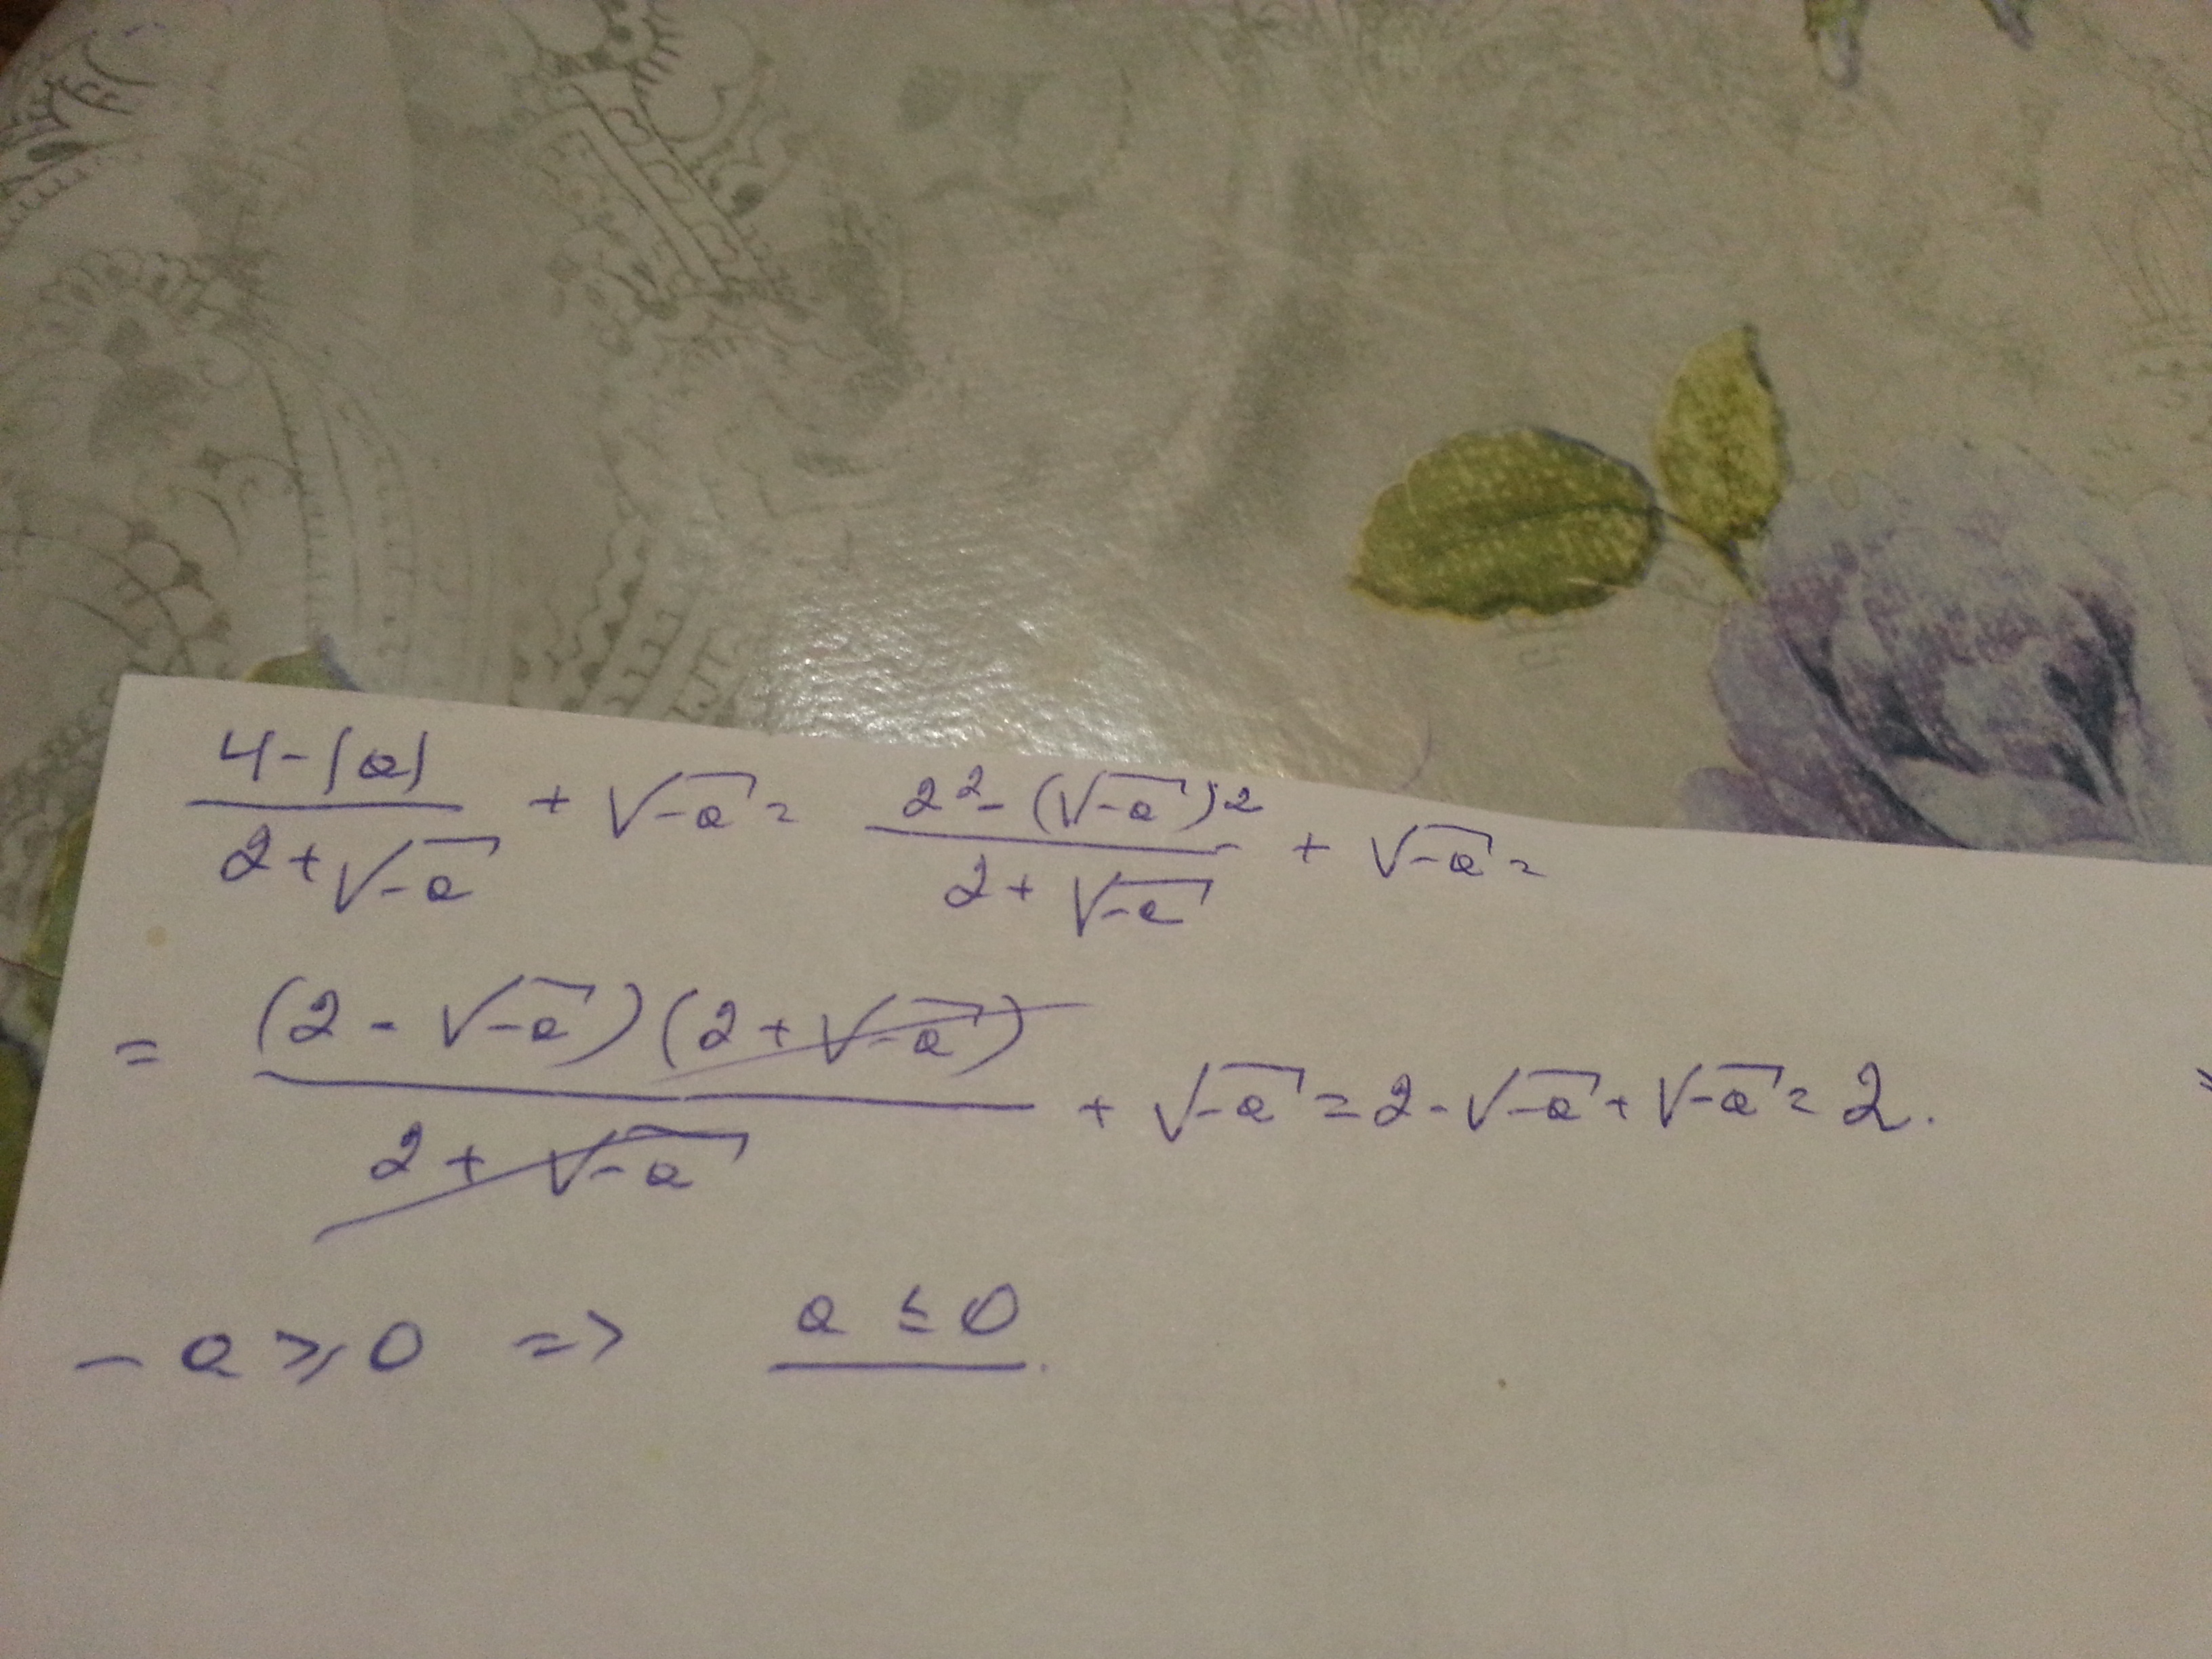 \frac{4-|a|}{2+\sqrt{-a}} + \sqrt{-a} = \frac{2^2-(\sqrt{-a})^2}{2+\sqrt{-a}} + \sqrt{-a} =
= \frac{(2-\sqrt{-a})(2+\sqrt{-a})}{2+\sqrt{-a}} + \sqrt{-a} = 2-\sqrt{-a}+\sqrt{-a} = 2.
-a ⩾ 0 => a ≤ 0.